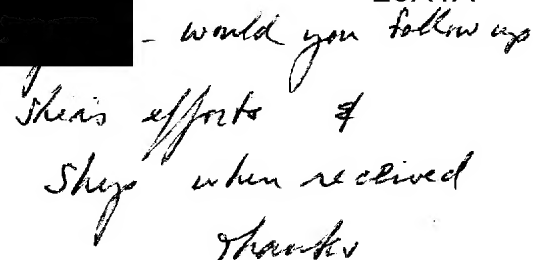 - would you follow up
efforts &
Ship when received
Thanks